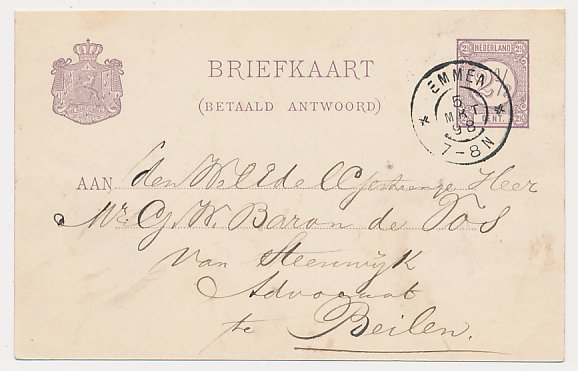 BRIEFKAART
(BETAALD ANTWOORD)
NEDERLAND
2½ CENT.
EMMEN
5
MRT
98
7-8N
AAN den WelEdelGestrenge Heer
Mr. C.J.W. Baron de Vos
van Steenwijk
Advocaat
te Beilen.